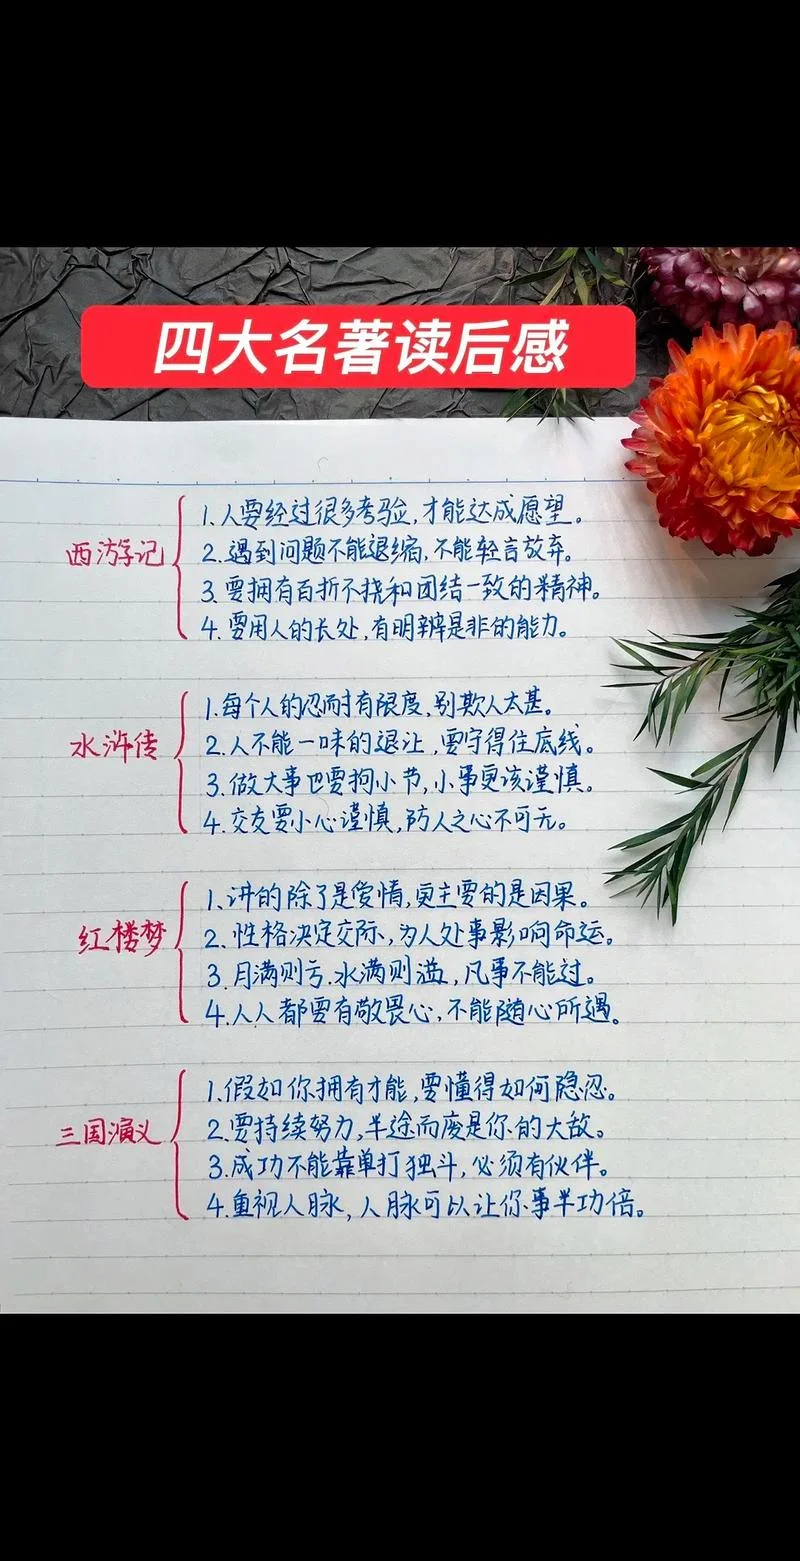 四大名著读后感
西游记
1.人要经过很多考验,才能达成愿望。
2.遇到问题不能退缩,不能轻言放弃。
3.要拥有百折不挠和团结一致的精神。
4.要用人的长处,有明辨是非的能力。
水浒传
1.每个人的忍耐有限度,别欺人太甚。
2.人不能一味的退让,要守得住底线。
3.做大事也要拘小节,小事更该谨慎。
4.交友要小心谨慎,防人之心不可无。
红楼梦
1.讲的除了是爱情,更主要的是因果。
2.性格决定交际,为人处事影响命运。
3.月满则亏.水满则溢,凡事不能过。
4.人人都要有敬畏心,不能随心所遇。
三国演义
1.假如你拥有才能,要懂得如何隐忍。
2.要持续努力,半途而废是你的大敌。
3.成功不能靠单打独斗,必须有伙伴。
4.重视人脉,人脉可以让你事半功倍。